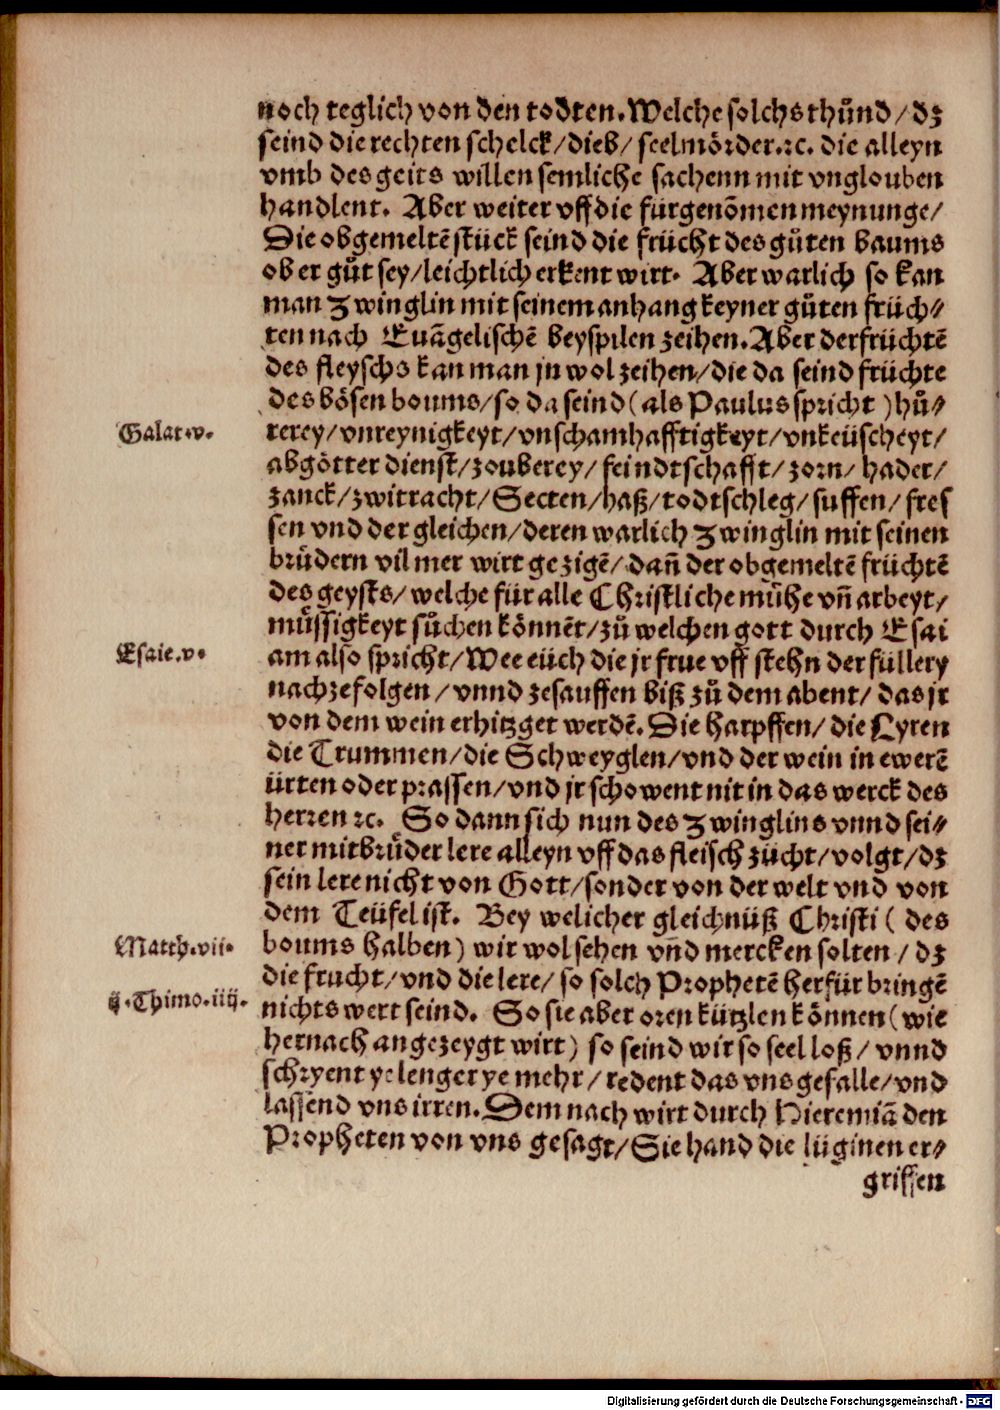 noch teglich von den todten. Welche solchs thůnd / dz
seind die rechten schelck / dieb / seelmörder. ꝛc. die alleyn
vmb des geits willen semliche sachenn mit vnglouben
handlent. Aber weiter vff die fürgenōmen meynunge /
Die obgemeltē stück seind die frücht des gůten baums
ob er gůt sey / leichtlich erkent wirt. Aber warlich so kan
man Zwinglin mit seinem anhang keyner gůten früch⸗
ten nach Euāgelischē beyspilen zeihen. Aber der früchtē
des fleyschs kan man jn wol zeihen / die da seind früchte
des bösen boums / so da seind ( als Paulus spricht ) hů⸗
Galat. v.
rerey / vnreynigkeyt / vnschamhafftigkeyt / vnkeüscheyt /
abgötter dienst / zouberey / feindtschafft / zorn / hader /
zanck / zwitracht / Secten / haß / todtschleg / suffen / fres
sen vnd der gleichen / deren warlich Zwinglin mit seinen
brůdern vil mer wirt gezigē / dañ der obgemeltē früchtē
des geysts / welche für alle Christliche mühe vñ arbeyt /
můssigkeyt sůchen könnēt / zů welchen gott durch Esai
Esaie. v.
am also spricht / Wee eüch die jr frue vff stehn der füllery
nachzefolgen / vnnd zesauffen biß zů dem abent / das jr
von dem wein erhitzget werdē. Die harpffen / die Lyren
die Trummen / die Schweyglen / vnd der wein in ewerē
ürten oder prassen / vnd jr schowent nit in das werck des
herren ꝛc. So dann sich nun des Zwinglins vnnd sei⸗
ner mitbrůder lere alleyn vff das fleisch zücht / volgt / dz
sein lere nicht von Gott / sonder von der welt vnd von
dem Teüfel ist. Bey welicher gleichnüß Christi ( des
Matth. vii.
boums halben ) wir wol sehen vñd mercken solten / dz
die frucht / vnd die lere / so solch Prophetē herfür bringē
ij. Thimo. iiij.
nichts wert seind. So sie aber oren kützlen können ( wie
hernach angezeygt wirt ) so seind wir so seelloß / vnnd
schryent ye lenger ye mehr / redent das vns gefalle / vnd
lassend vns irren. Dem nach wirt durch Hieremiā den
Propheten von vns gesagt / Sie hand die lüginen er⸗
griffen
Digitalisierung gefördert durch die Deutsche Forschungsgemeinschaft - DFG